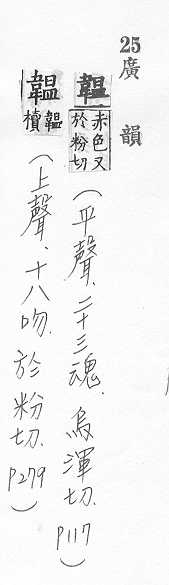 25廣韻
韞赤色又於粉切(平聲、二十三魂、烏渾切、P117)
韞韞櫝(上聲、十八吻、於粉切、P279)